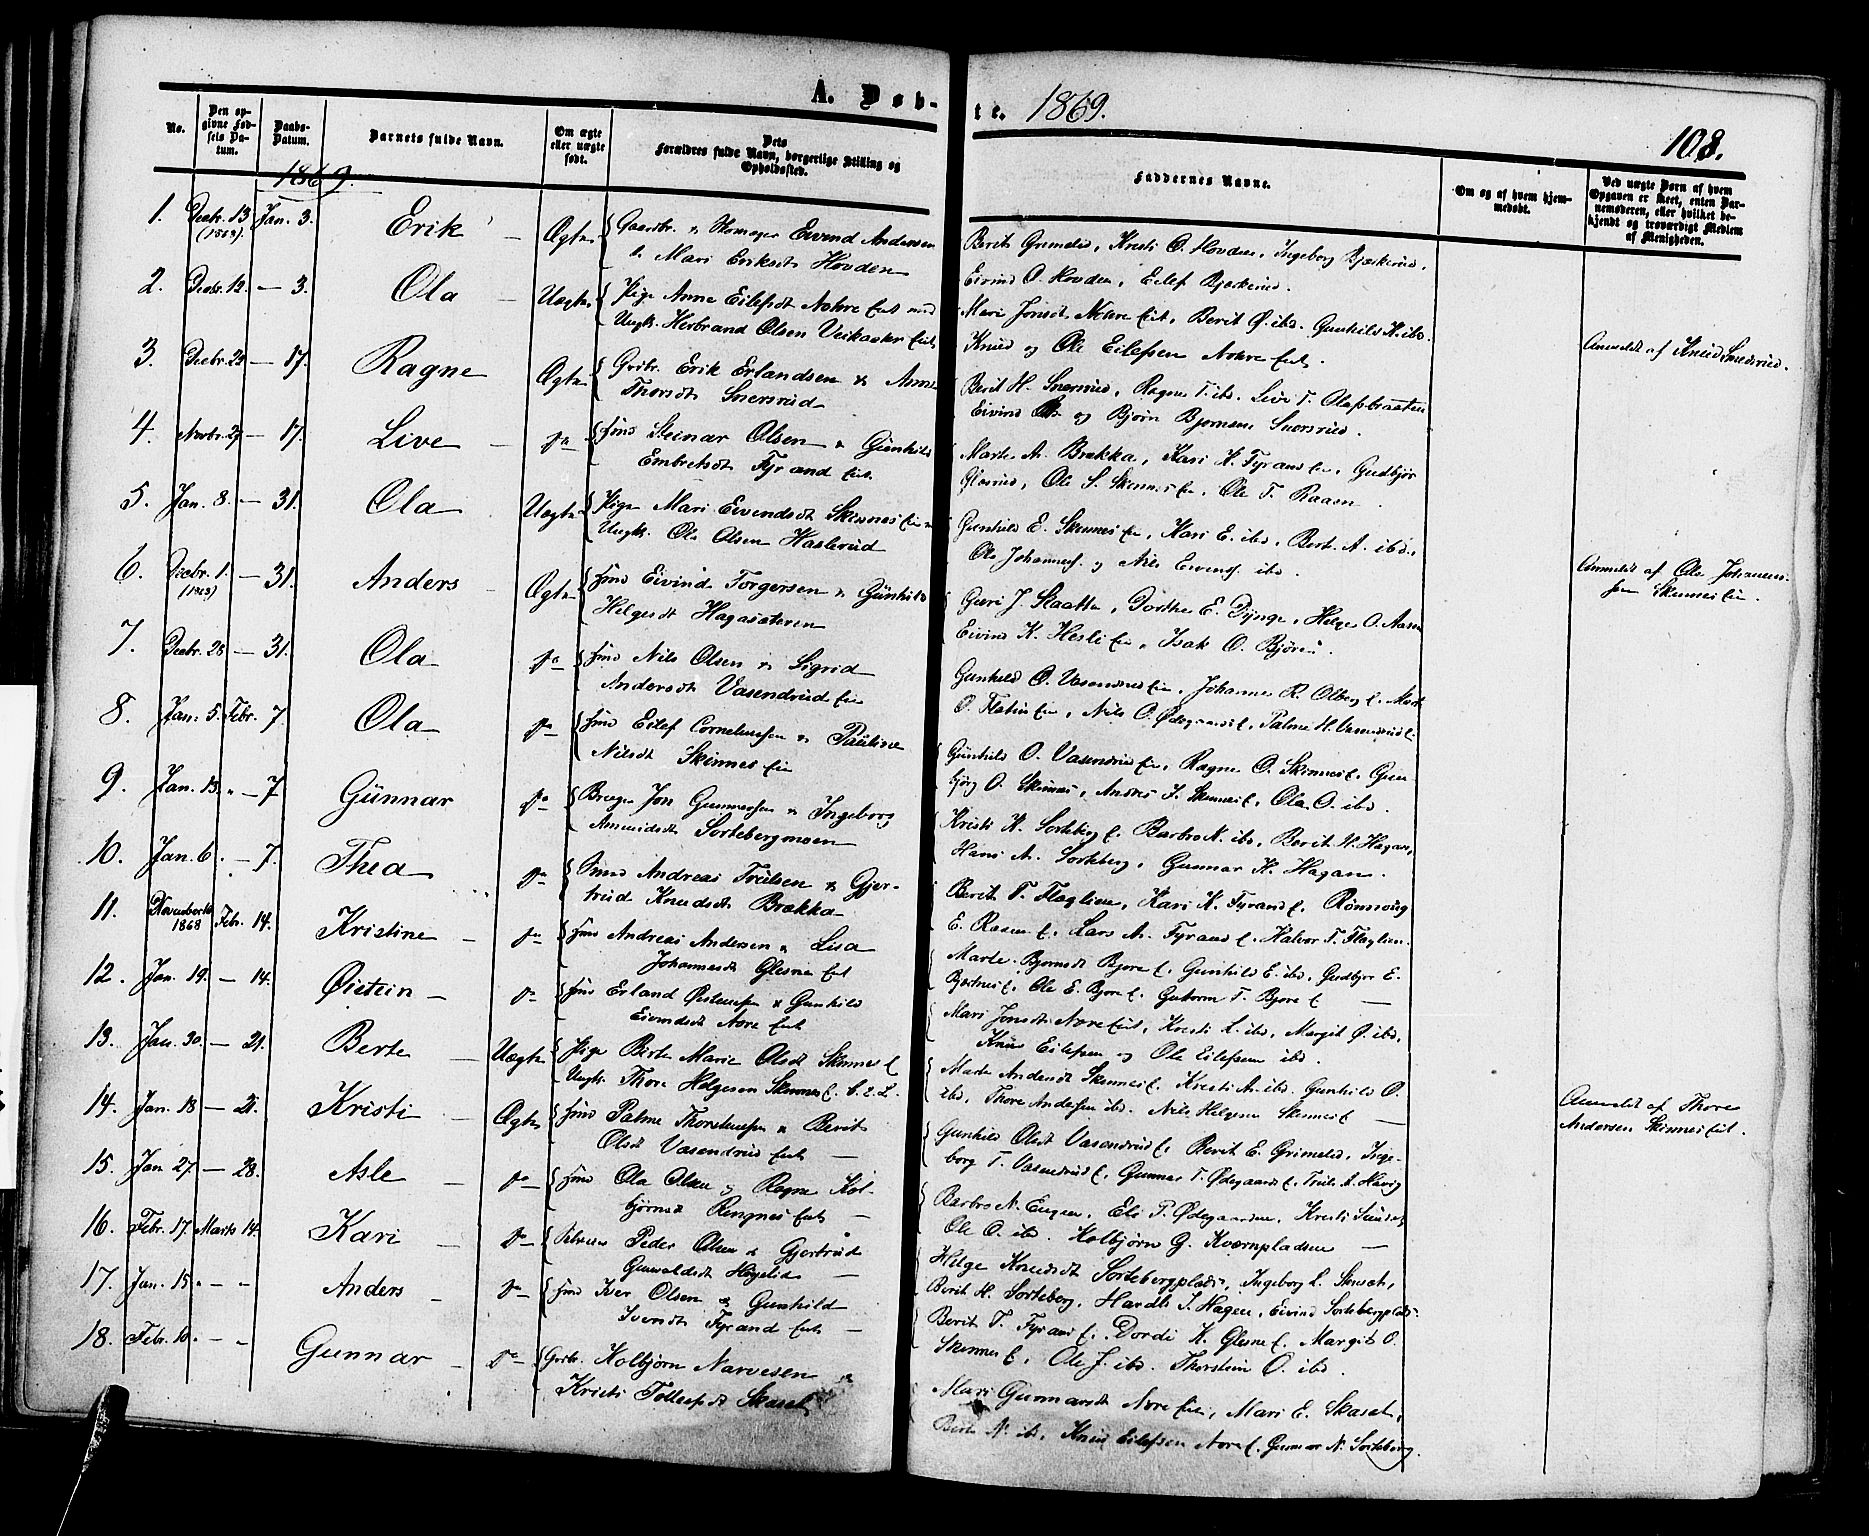 A. Døb-
te. 1869.
108.
No.
Den opgivne Fødsels Datum.
Daabs-Datum.
Barnets fulde Navn.
Om ægte eller uægte født.
Dets Forældres fulde Navn, borgerlige Stilling og Opholdssted.
Faddernes Navne.
Om og af hvem hjemmedøbt.
Ved uægte Børn af hvem Opgaven er skeet, enten Barnemoderen, eller hvilket bekjendt og troværdigt Medlem af Menigheden.
1869.
1. Decbr. 13 (1868). Jan. 3. Erik Ægte Gaardbr. & Skomager Eivind Andersen
& Mari Eriksdt Hovden
Berit Grimelid, Kristi O. Hovden, Ingeborg Bjerkerud,
Eivind O. Hovden, Eilef Bjerkerud.
2. Decbr. 12. — 3. Ola Uægte Pige Anne Eilefsdt Nohre Eiet med
Ungk. Herbrand Olsen Veikaaker Eiet
Mari Jonsdt Nohre Eiet, Berit Ø. ibd. Gunhild H. ibd.
Knud og Ole Eilefsen Nohre Eiet.
Anmeldt af Knud Smedsrud.
3. Decbr. 29 — 17. Ragne Ægte Grdbr. Erik Erlandsen & Anne
Thorsdt Snersrud
Berit H. Snersrud, Ragne T. ibd. Live T. Olafsbraaten
Eivind Ols og Bjørn Bjørnsen Snersrud.
4. Novbr. 27 — 17. Live — do Huusm Steinar Olsen & Gunhild
Embretsdt Fyrand Eiet.
Marte A. Brekka, Kari K. Fyrand Eie, Gudbjør
Glesrud, Ole S. Skinnes Eie, Ole T. Raaen
5. Jan. 8. — 31. Ola Uægte Pige Mari Eivindsdt Skinnes Eie &
Ungk. Ole Olsen Haslerud
Gunhild E. Skinnes Eie, Kari E. ibd, Berit A. ibd.,
Ole Johannes. og Nils Evens. ibd.
Anmeldt af Ole Johannes-
sen Skinnes Eie.
6. Decbr. 1. (1868) — 31. Anders Ægte Huusm Eivind Torgersen & Gunhild
Helgesdt Hagasæteren
Guri J. Skaatta, Dorthe E. Dynge, Helge O. Aasen
Eivind K. Hesli Eie, Isak O. Bjøre.
7. Decbr. 28 — 31. Ola do Huusm Nils Olsen & Sigrid
Andersdt Vasendrud Eie
Gunhild O. Vasendrud Eie, Johannes R. Olberg E. Marte
O. Flatin Eie, Nils O. Ødegaard E., Palme H. Vasendrud E.
8. Jan. 5. Febr. 7. Ola do Huusm Eilef Corneliussen & Pauline
Nilsdt Skinnes Eie
Gunhild O. Vasendrud Eie, Ragne O. Skinnes E., Gun-
bjørg O. Skinnes, Andres J. Skinnes E, Ole O. ibd.
9. Jan. 13. — 7 Gunnar do Bruger Jon Gunnersen & Ingeborg
Amundsdt Sortebergmoen
Kristi N. Sorteberg E. Barbro N. ibd, Berit H. Hagan,
Hans A. Sorteberg, Gunnar H. Hagan.
10. Jan. 6. — 7. Thea do Smed Andreas Trulsen & Gjer-
trud Knudsdt Brækka
Berit T. Flaglien, Kari K. Fyrand E, Rønnoug
E. Raaen E. Lars A. Fyrand E. Halvor T. Flaglien.
11. November 1868 Febr. 14. Kristine do Huusm Andreas Andersen & Lisa
Johannesdt Glesne Eiet
Marte Bjørnsdt Bjøre E, Gunhild E. ibd, Gudbjør E.
Bjertnes E, Ole E. Bjøre E. Guttorm T. Bjøre E —
12. Jan. 19. — 14. Øistein do Huusm Erland Østensen & Gunhild
Eivindsdt Nore Eiet
Mari Jonsdt Nore Eiet, Kristi L. ibd, Margit Ø. ibd,
Knud Eilefsen og Ole Eilefsen ibd.
13. Jan. 30. — 21. Berte Uægte Pige Birte Marie Olsdt Skinnes E
Ungk. Thore Helgesen Skinnes E.
Marte Andersdt Skinnes E. Kristi A. ibd Gunhild O.
ibd, Thore Andersen ibd. Nils Helgesen Skinnes E —
Anmeldt af Thore
Andersen Skinnes Eiet.
14. Jan. 18 — 21. Kristi Ægte Huusm Palme Thorstensen & Berit
Olsdt Vasendrud Eiet —
Gunhild Olsdt Vasendrud E, Berit E. Grimelid, Inge-
borg T. Vasendrud E, Gunnar T. Ødegaard E, Truls A. Havig
15. Jan 27 — 28. Asle do Huusm Ola Olsen & Ragne Kol-
bjørnsdt Ringnes Eiet —
Barbro N. Eugen, Eli P. Ødegaarden, Kristi Sundet,
Ole O. ibd. Kolbjørn G. Kværnpladsen —
16. Febr. 17. Marts 14. Kari do Peder Olsen & Gjertrud
Gunvaldsdt Høgelid —
Helge Knudsdt Sortebergplads, Ingeborg L. Skaset,
Berit H. Sorteberg, J. Hagen, Eivind Sortebergplads.
17. Jan. 15. Anders do Huusm Iver Olsen & Gunhild
Ivensdt Fyrand Eiet —
Berit T. Fyrand E. Dordi K. Glesne E. Margit O.
Skinnes E, Ole J. ibd. Thorstein O. ibd.
18. Febr. 10. Gunnar do Grdbr. Kolbjørn Narvesen &
Kristi Tollefsdt Skaset
Mari Gunnarsdt Nore Eiet, Mari E. Skaset,
Berte N. ibd, Knud Eilefsen Nore E. Gunnar N. Sorteberg.